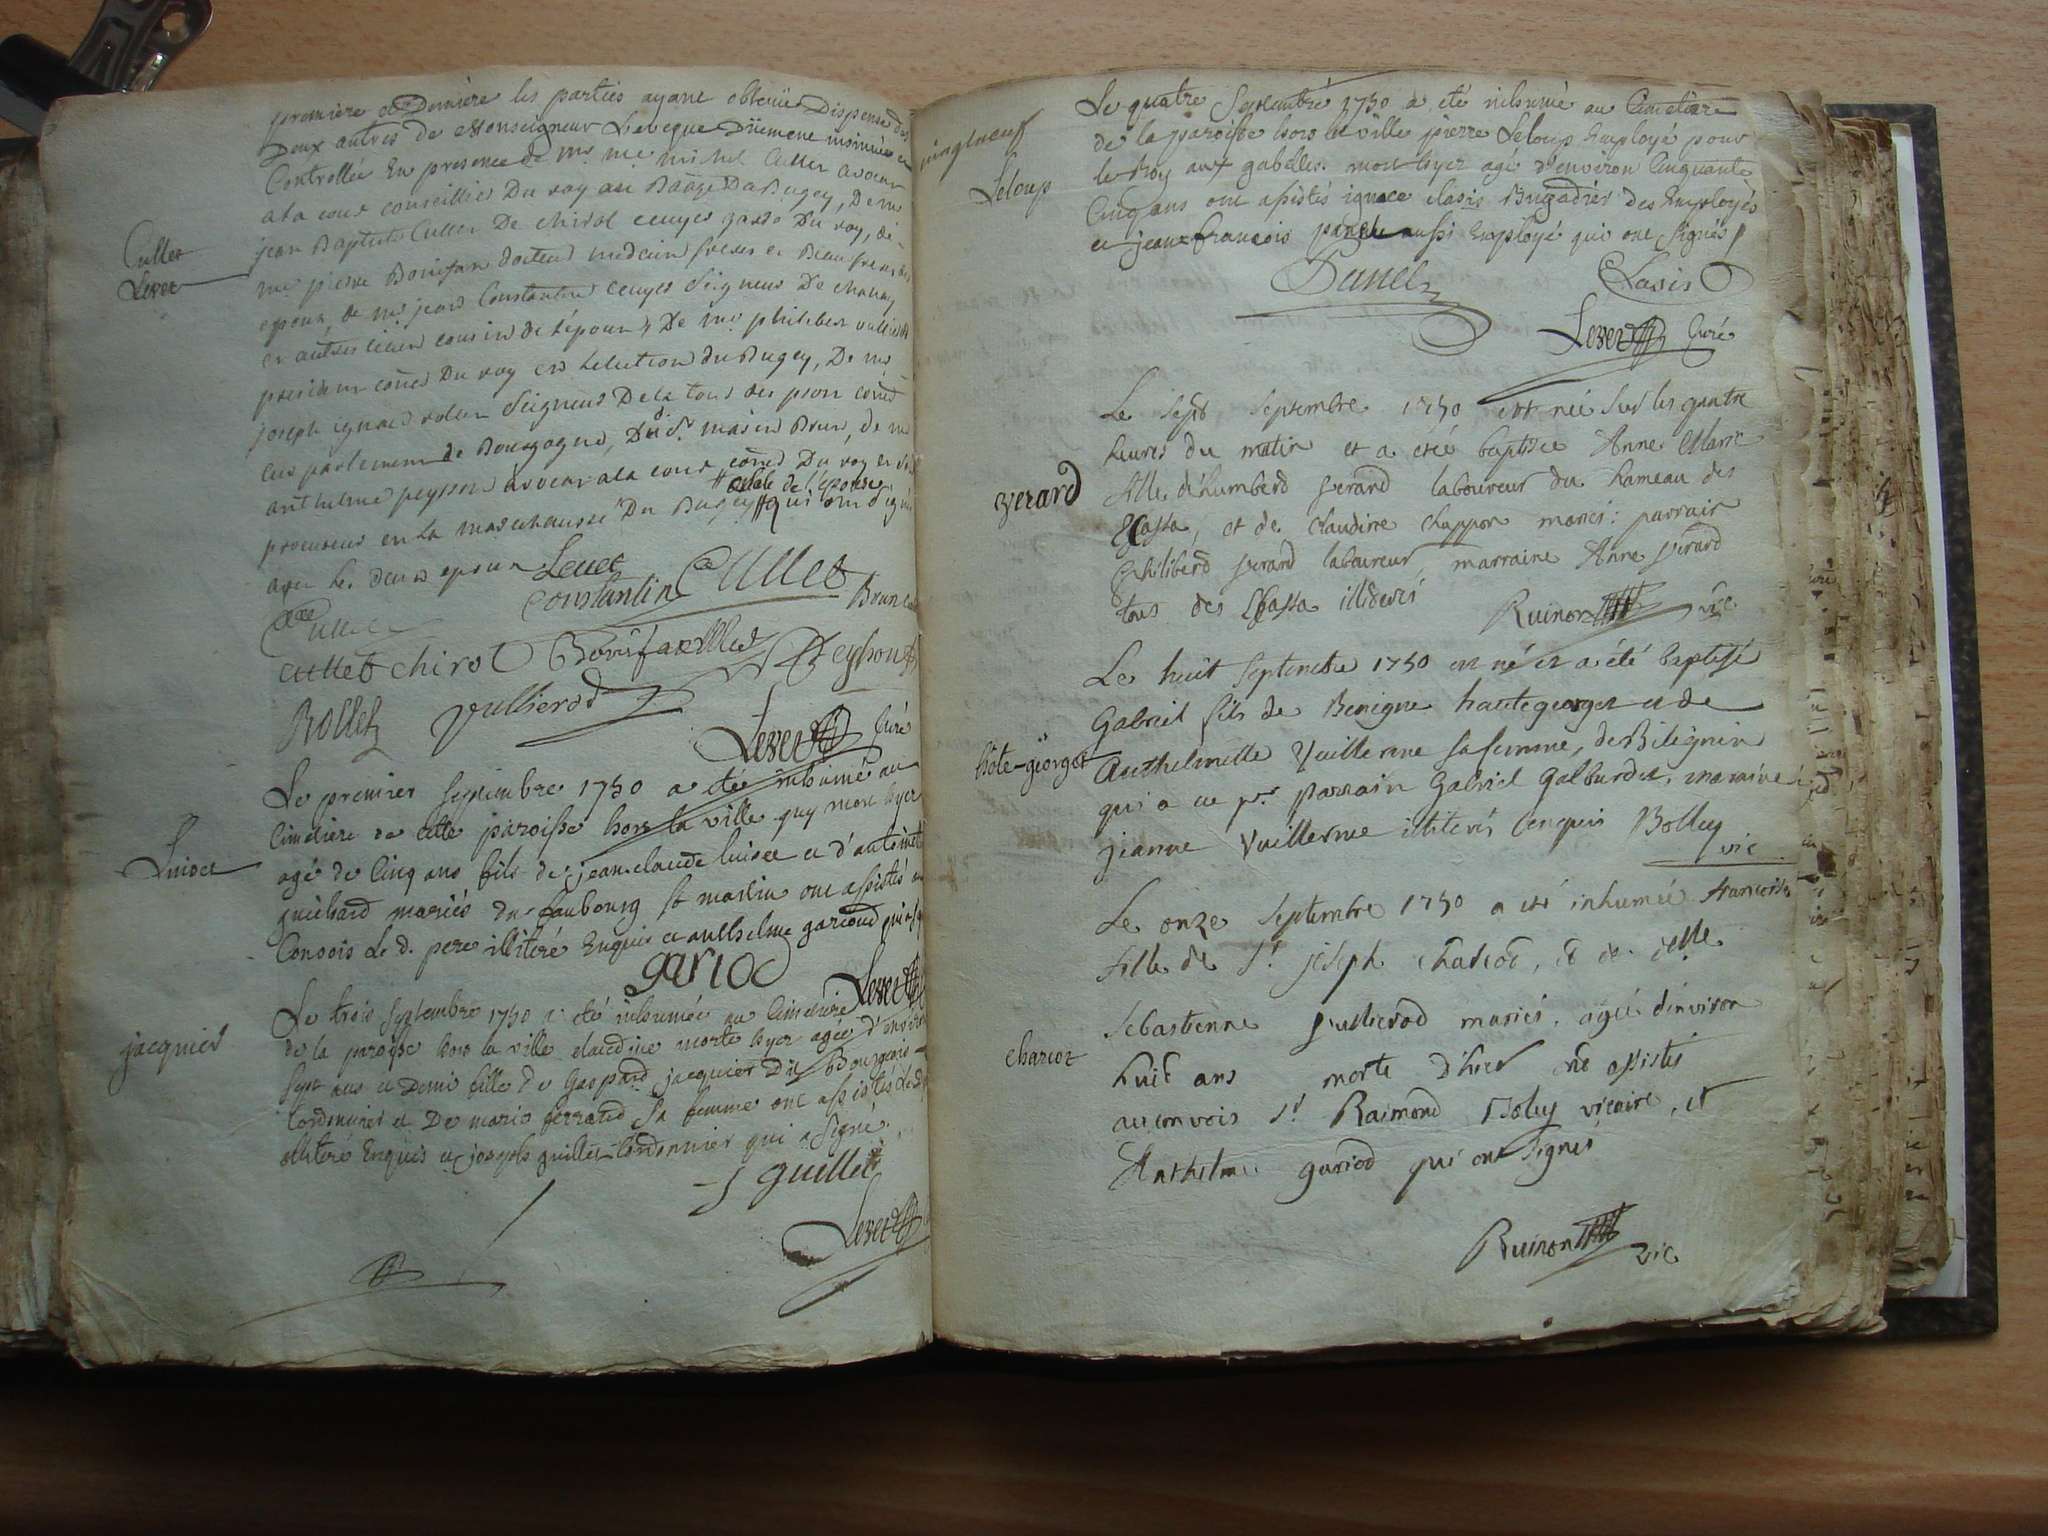 premiere et Derniere les parties ayant obtenüe Dispense des
Deux autres de Monseigneur L'eveque Düement insinuée et
Controllée En presence de mr. me michel Cullet avocat
a la cour conseiller Du roy au Bailliage Du Bugey, De mr
jean Baptiste Cullet De chirol ecuyer garde Du roy, de
mr. pierre Bonifax docteur medecin freres et Beau frere de
Cullet
Levet
epoux, de mr jean Constantin ecuyer Seigneur De chanay
et autres lieux cousin de l'epoux, De mr philibert vullierod
president Du roy en Lelection du Bugey, De mr
joseph ignace rollet Seigneur De la tour
au parlement de Bourgogne, Du Sr. Brun, de mr
anthelme peysson avocat a la cour Du roy et
procureur en la marechaussé Du Bugey qui ont signé
oncle de l'epouse
avec les deux epoux Levet
Constantin Cullet Brun
Cullet
Cullet chirol Bonifax Peysson
Rollet vullierod
Levet Curé
Luiset
Le premier septembre 1750 a été inhumé au
Cimetiere de cette paroisse hors la ville guy mort hyer
agé de Cinq ans fils de jean claude luiset et d'antoinette
guichard mariés du faubourg st martin ont assistés au
Convois Le d. pere illiteré Enquis et anthelme gariod qui a
gariod
Levet
jacquier
Le trois septembre 1750 a été inhumée au Cimetiere
de la paroisse hors la ville claudine morte hyer agée d'environ
sept ans et Demi fille de Gaspard jacquier Dit Bourgeois
Cordonnier et De marie ferrand sa femme ont assistés Le d.
illiteré Enquis et joseph guillet Cordonnier qui a signé.
J guillet
Levet
vingt neuf
Leloup
Le quatre Septembre 1750 a été inhumé au Cimetiere
de la paroisse hors la ville pierre Leloup Employé pour
le Roy aux gabelles. mort hyer agé d'environ Cinquante
Cinq ans ont assistés ignace clasis Brigadier des Employés
et jean francois panel aussi Employé qui ont signés
Panel Clasis
Levet Curé
verard
Le sept septembre 1750 est née sur les quatre
heures du matin et a etée baptisée Anne Marie
fille d'humberd verard laboureur du hameau des
Ecassa, et de claudine chappon mariés: parrain
philiberd verard laboureur, marraine Anne verard
tous des Ecassa illiderés
Ruinon vic
hôte-göorget
Le huit septembre 1750 est né et a été baptisé
Gabriel fils de Benigne hautegeorget et de
Anthelmette Vuillerme sa femme, de Bilignin
qui a eu pr. parrain Gabriel Galburdet, maraine
jeanne Vuillerme illiterés enquis Bolley
vic
Chariot
Le onze septembre 1750 a été inhumée francoise
fille de Sr. joseph chariod, et de delle
Sebastienne Vullierod mariés. agée d'environ
huit ans morte d'hier ont assistés
au convois Sr Raimond Boley vicaire, et
Anthelme gariod qui ont signés
Ruinon vic